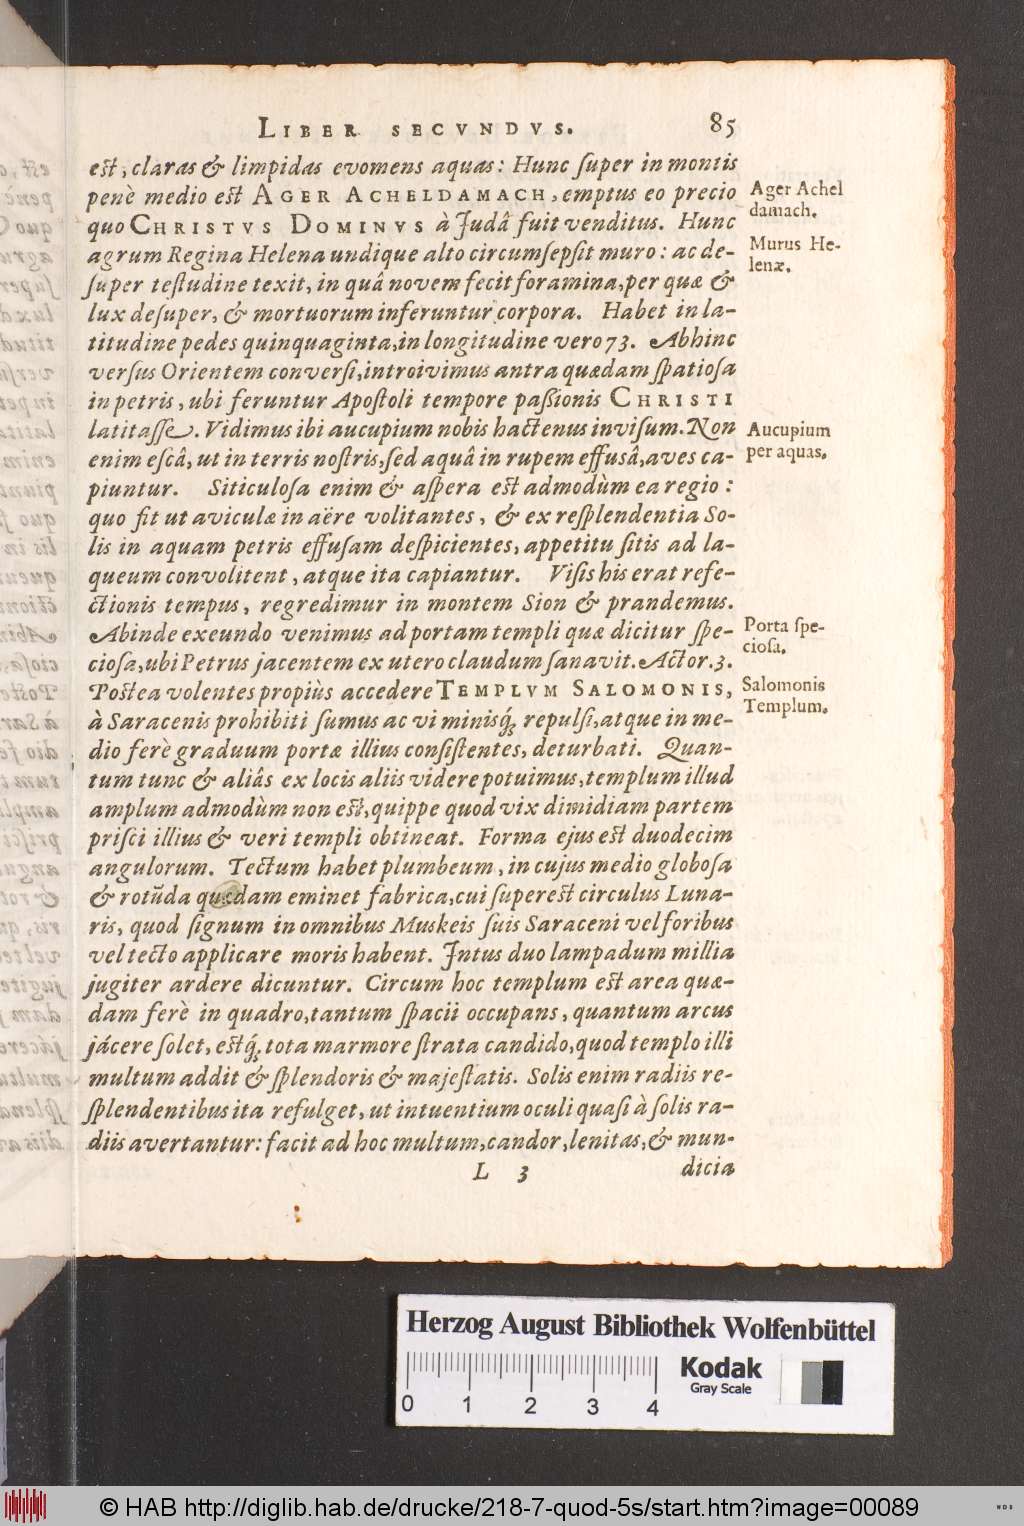 LIBER SECVNDVS. 85
est, claras & limpidas evomens aquas: Hunc super in montis
penè medio est AGER ACHELDAMACH, emptus eo precio
quo CHRISTVS DOMINVS à Judâ fuit venditus. Hunc
agrum Regina Helena undique alto circumsepsit muro: ac de-
super testudine texit, in quâ novem fecit foramina, per quæ &
lux desuper, & mortuorum inferuntur corpora. Habet in la-
titudine pedes quinquaginta, in longitudine vero 73. Abhinc
versus Orientem conversi, introivimus antra quædam spatiosa
in petris, ubi feruntur Apostoli tempore passionis CHRISTI
latitasse. Vidimus ibi aucupium nobis hactenus invisum. Non
enim escâ, ut in terris nostris, sed aquâ in rupem effusâ, aves ca-
piuntur. Siticulosa enim & aspera est admodùm ea regio:
quo fit ut aviculæ in aëre volitantes, & ex resplendentia So-
lis in aquam petris effusam despicientes, appetitu sitis ad la-
queum convolitent, atque ita capiantur. Visis his erat refe-
ctionis tempus, regredimur in montem Sion & prandemus.
Abinde exeundo venimus ad portam templi quæ dicitur spe-
ciosa, ubi Petrus jacentem ex utero claudum sanavit. Actor. 3.
Postea volentes propiùs accedere TEMPLVM SALOMONIS,
à Saracenis prohibiti sumus ac vi minisq́; repulsi, atque in me-
dio ferè graduum portæ illius consistentes, deturbati. Quan-
tum tunc & aliâs ex locis aliis videre potuimus, templum illud
amplum admodùm non est, quippe quod vix dimidiam partem
prisci illius & veri templi obtineat. Forma ejus est duodecim
angulorum. Tectum habet plumbeum, in cujus medio globosa
& rotũda quædam eminet fabrica, cui superest circulus Luna-
ris, quod signum in omnibus Muskeis suis Saraceni vel foribus
vel tecto applicare moris habent. Intus duo lampadum millia
jugiter ardere dicuntur. Circum hoc templum est area quæ-
dam ferè in quadro, tantum spacii occupans, quantum arcus
jácere solet, estq́; tota marmore strata candido, quod templo illi
multum addit & splendoris & majestatis. Solis enim radiis re-
splendentibus ita refulget, ut intuentium oculi quasi à solis ra-
diis avertantur: facit ad hoc multum, candor, lenitas, & mun-
L 3 dicia
Ager Achel
damach.
Murus He-
lenæ.
Aucupium
per aquas.
Porta spe-
ciosa.
Salomonis
Templum.
Herzog August Bibliothek Wolfenbüttel
Kodak
Gray Scale
0 1 2 3 4
© HAB http://diglib.hab.de/drucke/218-7-quod-5s/start.htm?image=00089